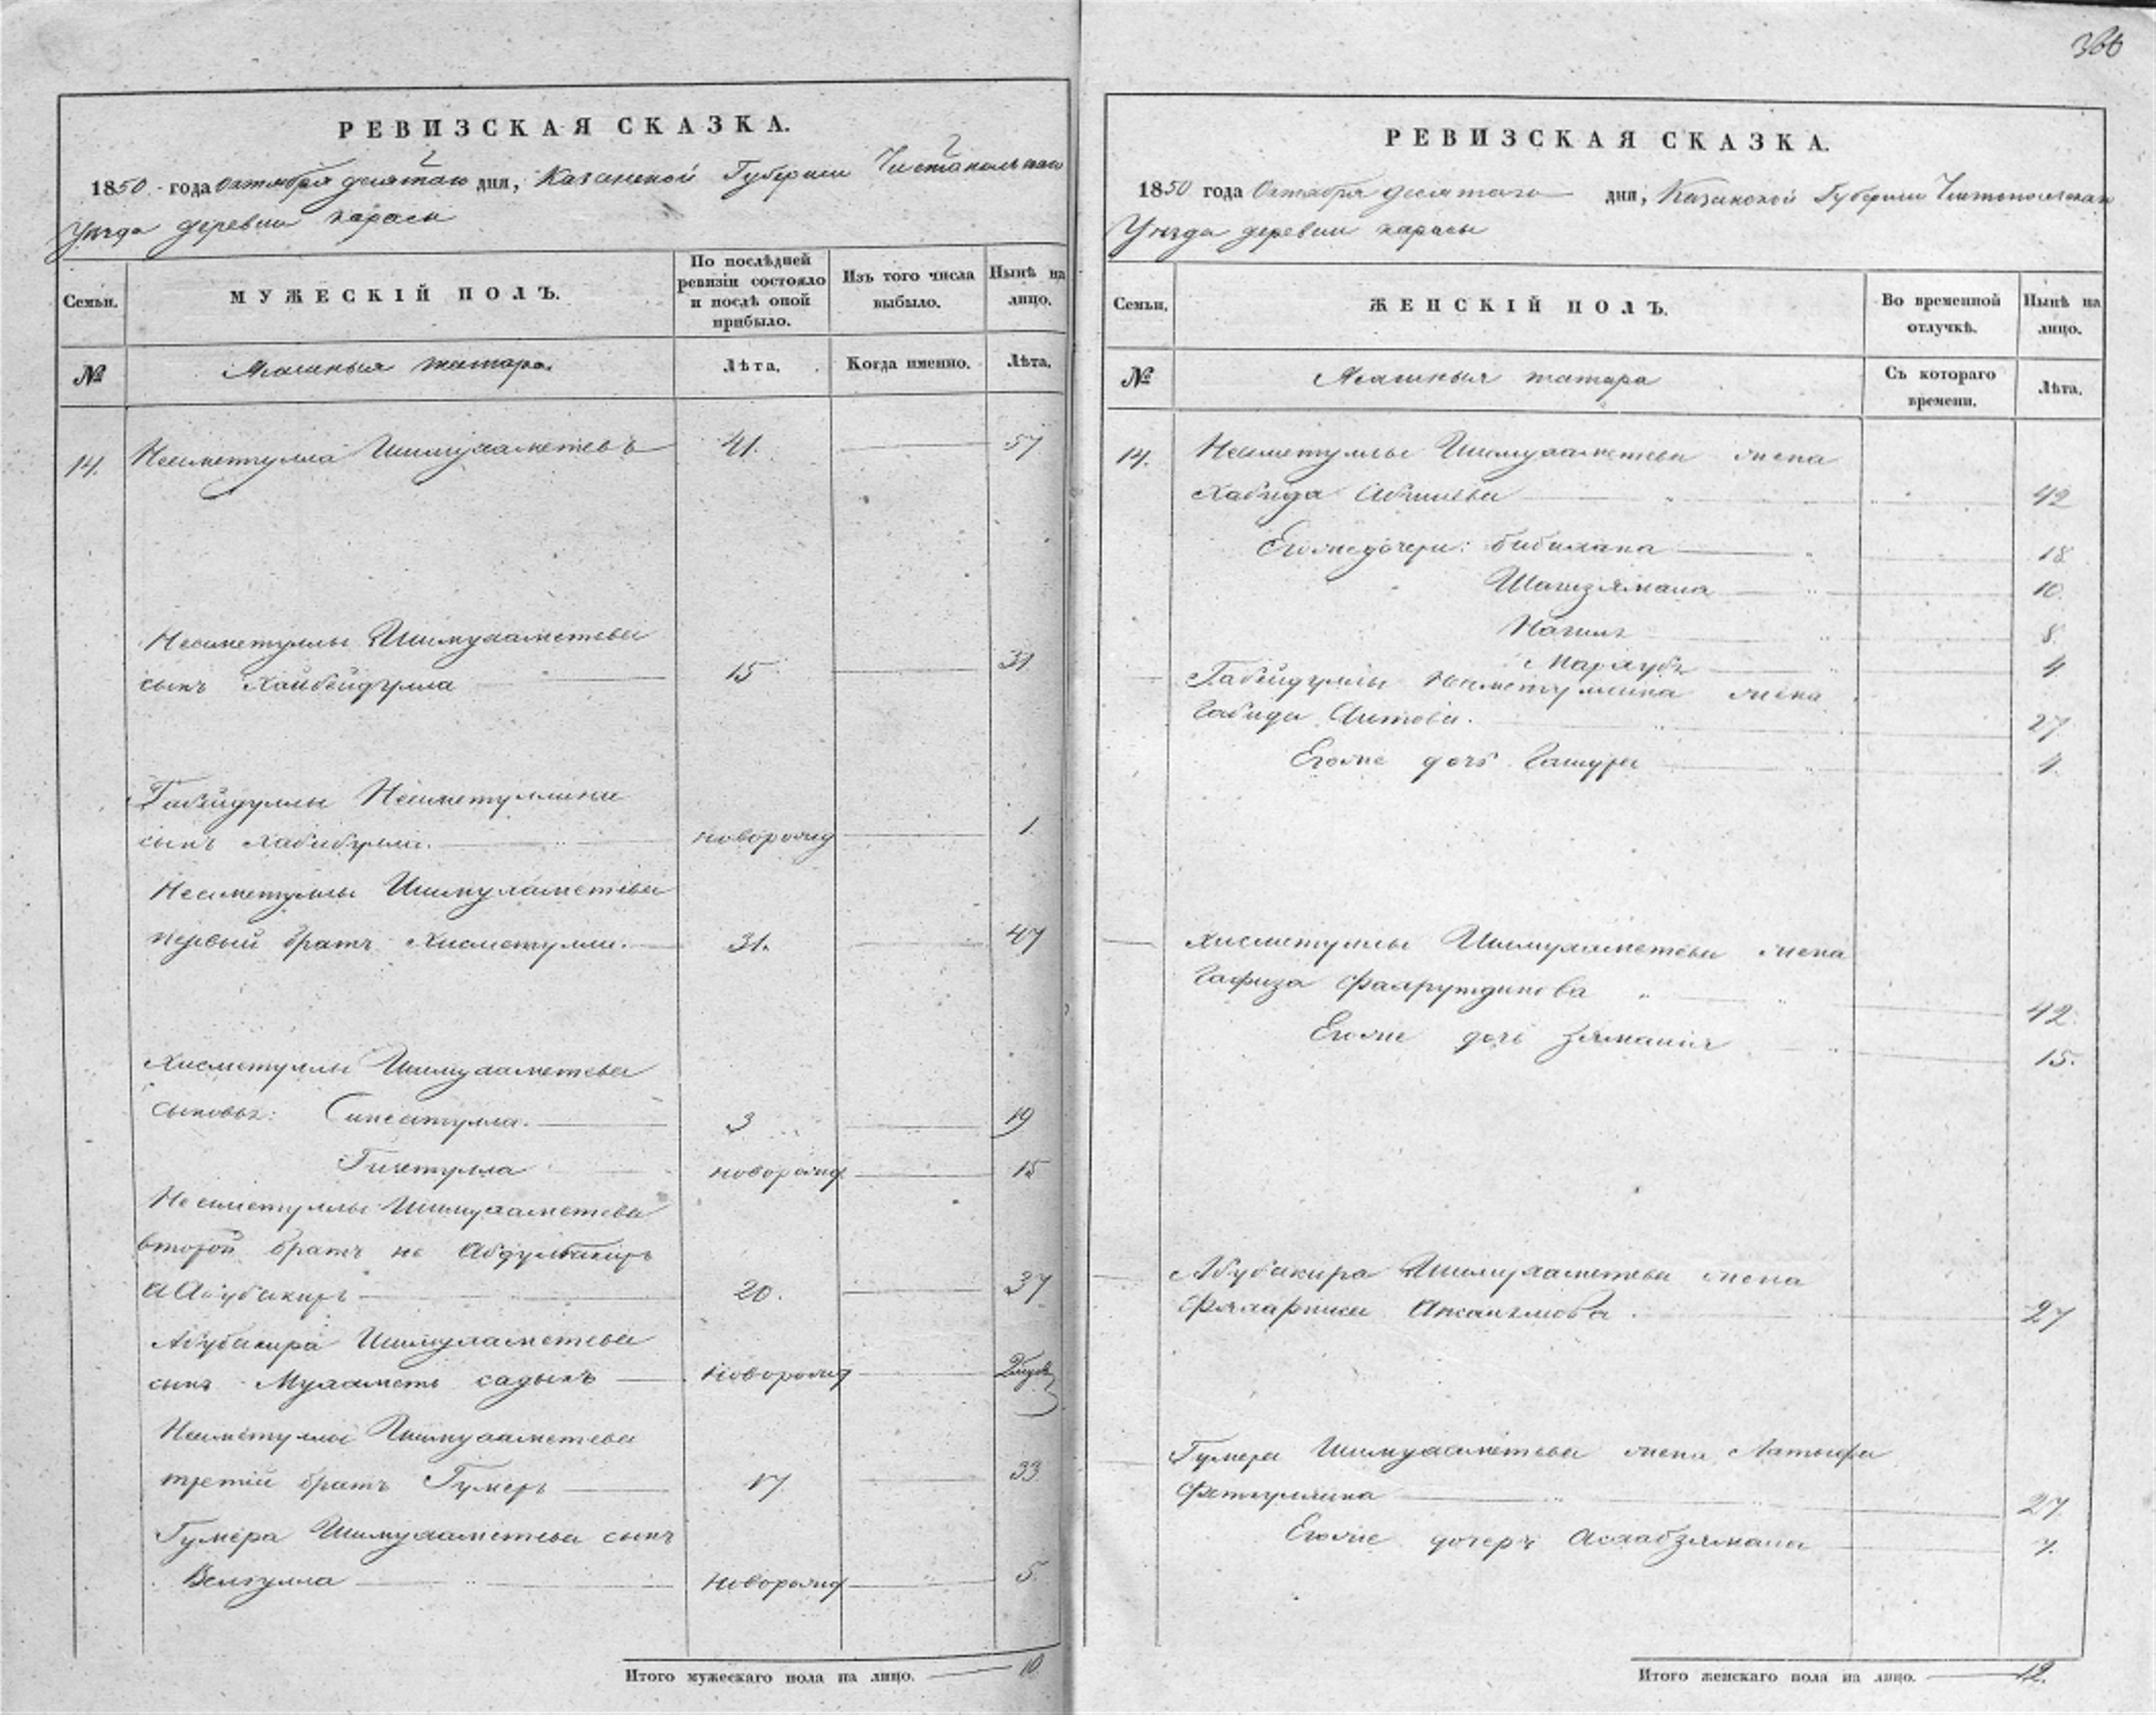 366
РЕВИЗСКАЯ СКАЗКА.
1850 года октября десятаго дня, Казанской Губернии Чистопольскаго
Уѣзда деревни Карасы
Семьи.
МУЖЕСКІЙ ПОЛЪ.
По послѣдней ревизіи состояло и послѣ оной прибыло.
Изъ того числа выбыло.
Нынѣ на лицо.
№
Ясашныя татара.
Лѣта.
Когда именно.
Лѣта.
14. Несметулла Ишмухаметевъ 41. 57
Несметуллы Ишмухаметева
сынъ Хайбейдулла 15 31
Габейдуллы Несметуллина
сынъ Хабибулла. новорожд 1.
Несметуллы Ишмухаметева
первый братъ Хисметулла. 31. 47
Хисметуллы Ишмухаметева
сыновья: 3 19
Гизетулла новорожд 15
Несметуллы Ишмухаметева
второй братъ не
а Абубакиръ 20. 37
Абубакира Ишмухаметева
сынъ Мухаметь садыкъ новорожд
Несметуллы Ишмухаметева
третій братъ Гумеръ 17 33
Гумера Ишмухаметева сынъ
Велиулла новорожд 5.
Итого мужескаго пола на лицо. 10.
РЕВИЗСКАЯ СКАЗКА.
1850 года Октября десятаго дня, Казанской Губернии Чистопольскаго
Уѣзда деревни карасы
Семьи.
ЖЕНСКІЙ ПОЛЪ.
Во временной отлучкѣ.
Нынѣ на лицо.
№
Ясашныя татара
Съ котораго времени.
Лѣта.
14. Несметуллы Ишмухаметева жена
Хабида 42
Егоже дочери: бибижана 18
Шагизямала 10.
Нагима 8.
4
Габейдуллы Несметуллина жена
Габида Аитова. 27
Егоже дочь 4.
Хисметуллы Ишмухаметева жена
Гафиза Фахрутдинова 42.
Егоже дочь 15.
Абубакира Ишмухаметева жена
27
Гумера Ишмухаметева жена Латыфа
Феткуллина 27.
Егоже дочерь 7.
Итого женскаго пола на лицо. 12.